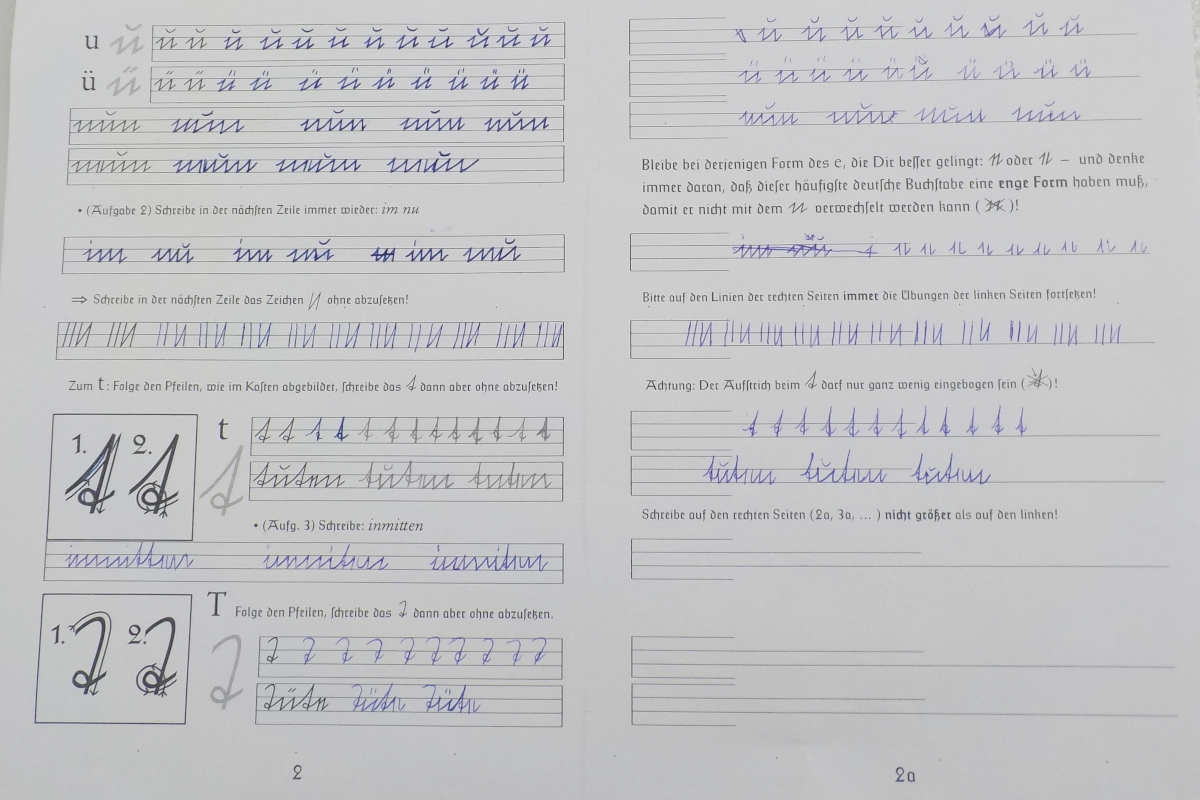 u ŭ ŭ ŭ ŭ ŭ ŭ ŭ ŭ ŭ ŭ ŭ ŭ ŭ
ü ü ü ü ü ü ü ü ü ü ü ü ü ü
nŭn nŭn nŭn nŭn nŭn
nŭn nŭn nŭn nŭn
• (Aufgabe 2) Schreibe in der nächſten Zeile immer wieder: im nu
im nŭ im nŭ im nŭ
⇒ Schreibe in der nächſten Zeile das Zeichen n ohne abzuſetzen!
Zum t: Folge den Pfeilen, wie im Kaſten abgebildet, ſchreibe das t dann aber ohne abzuſetzen!
1. t 2. t
t t t t t t t t t t t t t t
tŭten tŭten tuten
• (Aufg. 3) Schreibe: inmitten
inmitten inmitten inmitten
1. T 2. T
T Folge den Pfeilen, ſchreibe das T dann aber ohne abzuſetzen.
T T T T T T T T T T
Tüte Tüte Tüte
2
ŭ ŭ ŭ ŭ ŭ ŭ ŭ ŭ ŭ
ü ü ü ü ü ü ü ü ü ü
nŭn nŭn nŭn nŭn
Bleibe bei derjenigen Form des e, die Dir beſſer gelingt: e oder e – und denke
immer daran, daß dieſer häufigſte deutſche Buchſtabe eine enge Form haben muß,
damit er nicht mit dem n verwechſelt werden kann ( )!
e e e e e e e e e
Bitte auf den Linien der rechten Seiten immer die Übungen der linken Seiten fortſetzen!
Achtung: Der Aufſtrich beim t darf nur ganz wenig eingebogen ſein ( )!
t t t t t t t t t t t
tŭten tŭten tŭten
Schreibe auf den rechten Seiten (2a, 3a, ... ) nicht größer als auf den linken!
2a